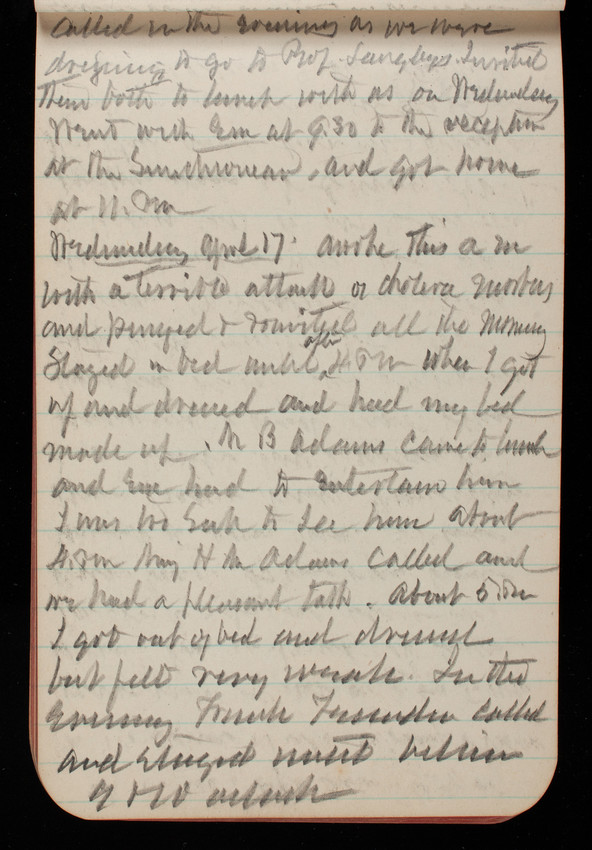 called in the evening as we were
dressing to go to Prof. Langleys. Invited
them both to lunch with us on Wednesday
Went with Em at 9.30 to the reception
at the Smithsonian, and got home
at 11. Pm
Wednesday April 17. awoke this a m
with a terrible attack of cholera morbus
and purged & vomited all the morning
Stayed in bed until after 4 P m when I got
up and dressed and had my bed
made up. M B Adams came to lunch
and Em had to entertain him
I was too sick to see him about
4. Pm Maj H M Adams called and
we had a pleasant talk. About 5 Pm
I got out of bed and dressed
but felt very weak. In the
Evening Frank called
and stayed until between
9 & 10 oclock